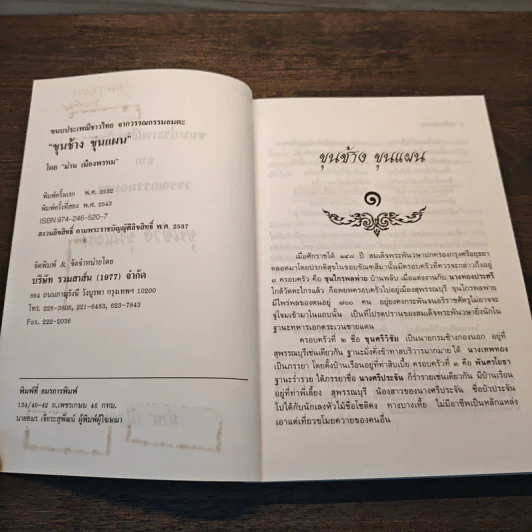 ขนบประเพณีชาวไทย จากวรรณกรรมอมตะ
"ขุนช้าง ขุนแผน"
โดย "ม่วน เมืองพรหม"
พิมพ์ครั้งแรก พ.ศ. 2532
พิมพ์ครั้งที่สอง พ.ศ. 2543
ISBN 974-246-520-7
สงวนลิขสิทธิ์ ตามพระราชบัญญัติลิขสิทธิ์ พ.ศ. 2537
จัดพิมพ์ & จัดจำหน่ายโดย
บริษัท รวมสาส์น (1977) จำกัด
864 ถนนภาณุรังษี วังบูรพา กรุงเทพฯ 10200
โทร. 226-3808, 221-6483, 623-7843
Fax. 222-2036
พิมพ์ที่ อมรการพิมพ์
134/40-42 ถ.เพชรเกษม 46 กทม.
นายอมร เจียระสุพัฒน์ ผู้พิมพ์ผู้โฆษณา
ขุนช้าง ขุนแผน
๑
เมื่อศักราชได้ ๑๔๗ ปี สมเด็จพระพันวษาปกครองกรุงศรีอยุธยา
ตลอดมาโดยปรกติสุขในขอบขัณฑสีมานั้นมีครอบครัวที่ควรจะกล่าวถึงอยู่
๓ ครอบครัว คือ ขุนไกรพลพ่าย บ้านพลับ เมื่อแต่งงานกับ นางทองประศรี
ใกล้วัดตะไกรแล้ว ก็อพยพครอบครัวไปอยู่เมืองสุพรรณบุรี ขุนไกรพลพ่าย
มีไพร่พลของตนอยู่ ๗๐๐ คน อยู่ยงคงกระพันจนอริราชศัตรูไม่อาจจะ
จู่โจมเข้ามาในแถบนั้น เป็นที่โปรดปรานของสมเด็จพระพันวษายิ่งนักใน
ฐานะทหารเอกตระเวนชายแดน
ครอบครัวที่ ๒ ชื่อ ขุนศรีวิชัย เป็นนายกรมช้างกองนอก อยู่ที่
สุพรรณบุรีเช่นเดียวกัน ฐานะมั่งคั่งข้าทาสบริวารมากมาย ได้ นางเทพทอง
เป็นภรรยา โดยตั้งบ้านเรือนอยู่ที่ท่าสิบเบี้ย ครอบครัวที่ ๓ คือ พันศรโยธา
ฐานะร่ำรวย ได้ภรรยาชื่อ นางศรีประจัน ก็ร่ำรวยเช่นเดียวกัน มีบ้านเรือน
อยู่ที่ท่าพี่เลี้ยง สุพรรณบุรี น้องสาวของนางศรีประจัน ชื่อบัวประจัน
ไปได้กับนักเลงหัวไม้ชื่อโชติคง ทางบางเหี้ย ไม่มีอาชีพเป็นหลักแหล่ง
เอาแต่เที่ยวขโมยควายของคนอื่น